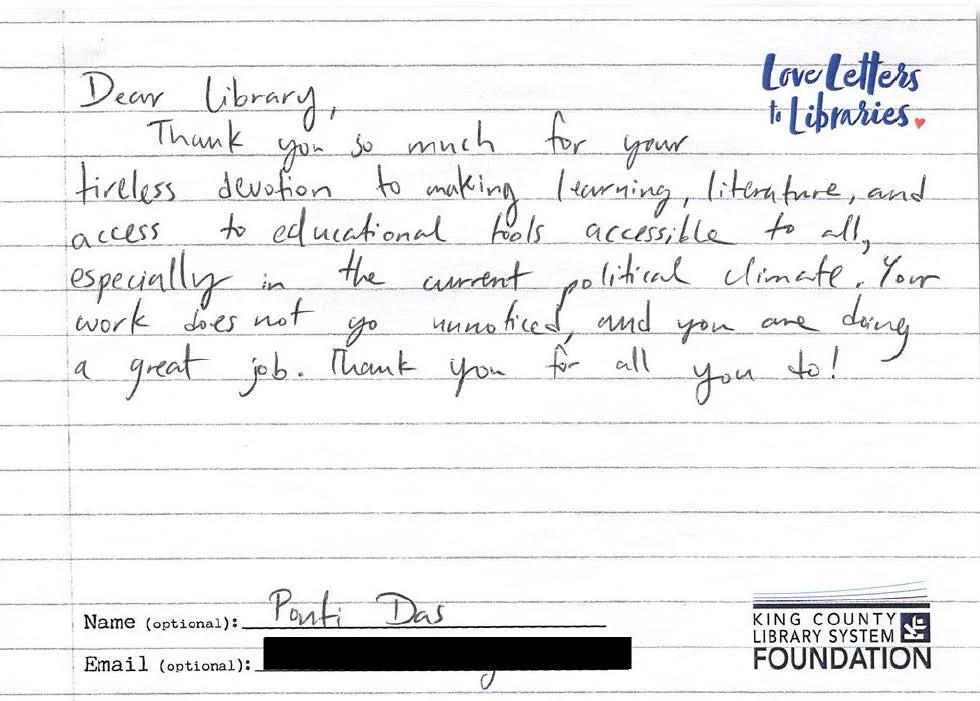 Love Letters
to Libraries.
Dear Library,
Thank you so much for your
tireless devotion to making learning, literature, and
access to educational tools accessible to all,
especially in the current political climate. Your
work does not go unnoticed, and you are doing
a great job. Thank you for all you to!
Name (optional): Ponti Das
Email (optional):
KING COUNTY
LIBRARY SYSTEM
FOUNDATION